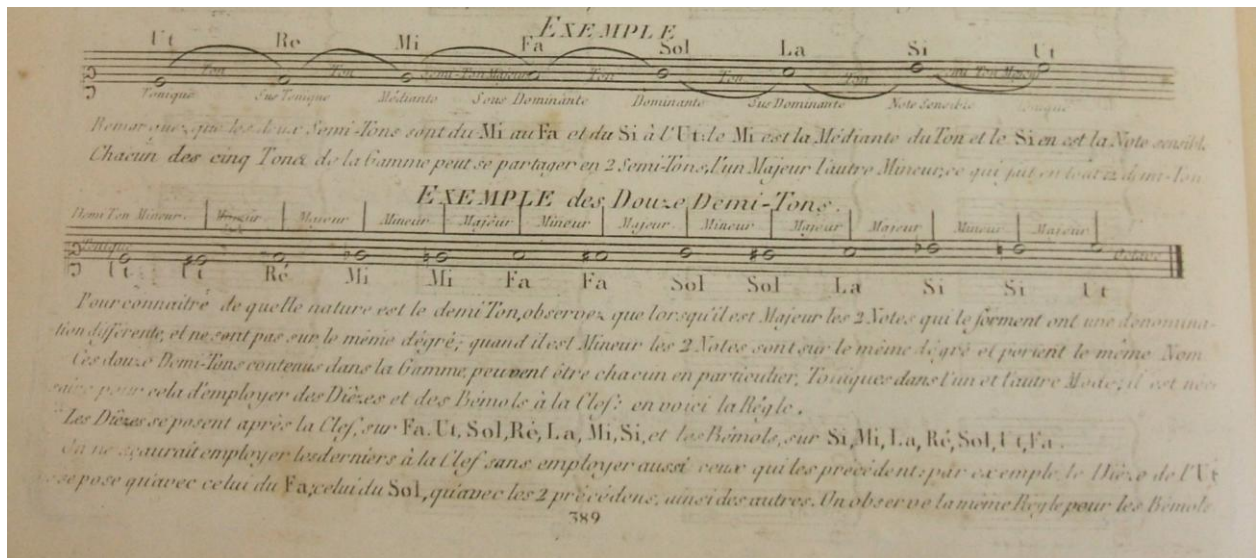 EXEMPLE
Ut Re Mi Fa Sol La Si Ut
Ton Ton Semi-Ton Majeur Ton Ton Ton Semi Ton Majeur
Tonique Sus Tonique Médiante Sous Dominante Dominante Sus Dominante Note Sensible Tonique
Remarquez que les deux Semi-Tons sont du Mi au Fa et du Si à l'Ut: le Mi est la Médiante du Ton et le Si en est la Note sensibl
Chacun des cinq Tons de la Gamme peut se partager en 2 Semi-Tons, l'un Majeur l'autre Mineur; ce qui fait en tout 12 demi-Ton
EXEMPLE des Douze Demi-Tons.
Demi Ton Mineur. Majeur Mineur Majeur Mineur Majeur. Mineur Majeur Majeur Mineur Majeur
Tonique Octave
Ut Ut Ré Mi Mi Fa Fa Sol Sol La Si Si Ut
Pour connaitré de quelle nature est le demi Ton, observez que lorsqu'il est Majeur les 2 Notes qui le forment ont une dénomina-
tion différente, et ne sont pas sur le même dégré; quand il est Mineur les 2 Notes sont sur le même dégré et portent le même Nom
Ces douze Demi-Tons contenus dans la Gamme, peuvent être chacun en particulier, Toniques dans l'un et l'autre Mode; il est néces
saire pour cela d'employer des Dièzes et des Bémols à la Clef: en voici la Régle.
Les Dièzes se posent après la Clef, sur Fa. Ut, Sol, Ré, La, Mi, Si, et les Bémols, sur Si, Mi, La, Ré, Sol, Ut, Fa.
On ne sçaurait employer les derniers à la Clef sans employer aussi ceux qui les précédent: par exemple le Dièze de l'Ut
se pose qu'avec celui du Fa; celui du Sol, qu'avec les 2 précédens, ainsi des autres. On observe la même Régle pour les Bémols
389